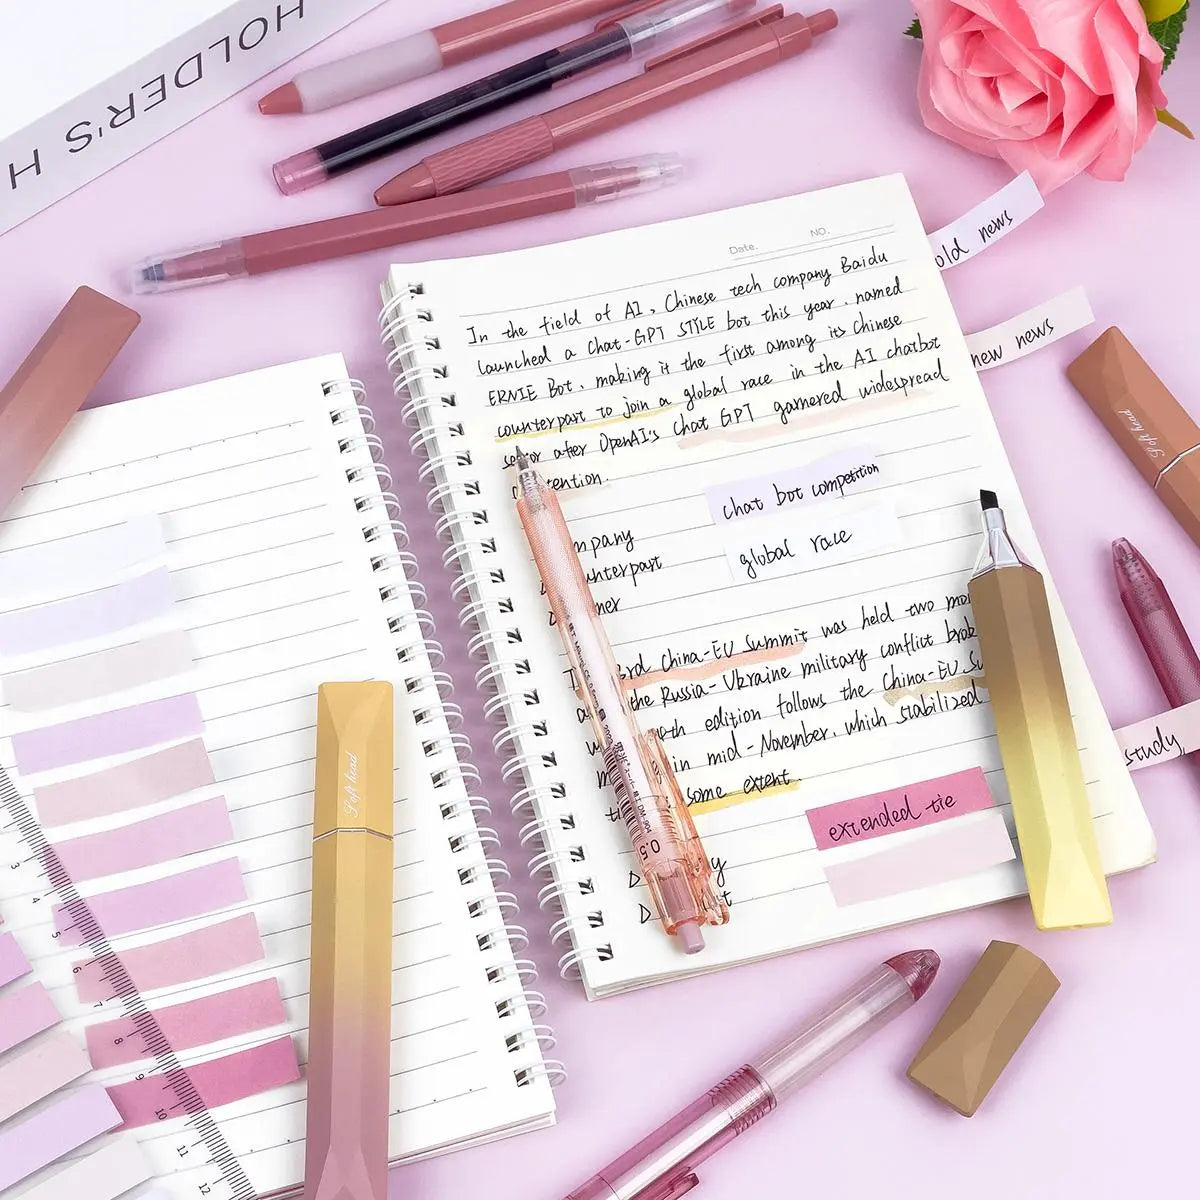 HOLDER'S H
Date. NO.
In the field of AI, Chinese tech company Baidu
launched a Chat-GPT STILE bot this year, named
ERNIE Bot, making it the first among its Chinese
counterpart to join a global race in the AI chatbot
after OpenAI's Chat GPT garnered widespread
old news
new news
chat bot competition
global race
China-EU Summit was held two
the Russia-Ukraine military conflict
edition follows the China-EU
in mid-November, which stabilized
some extent.
extended tie
study,
Soft head
Soft head
Soft head
0.5
3
4
5
6
7
8
9
10
11
12